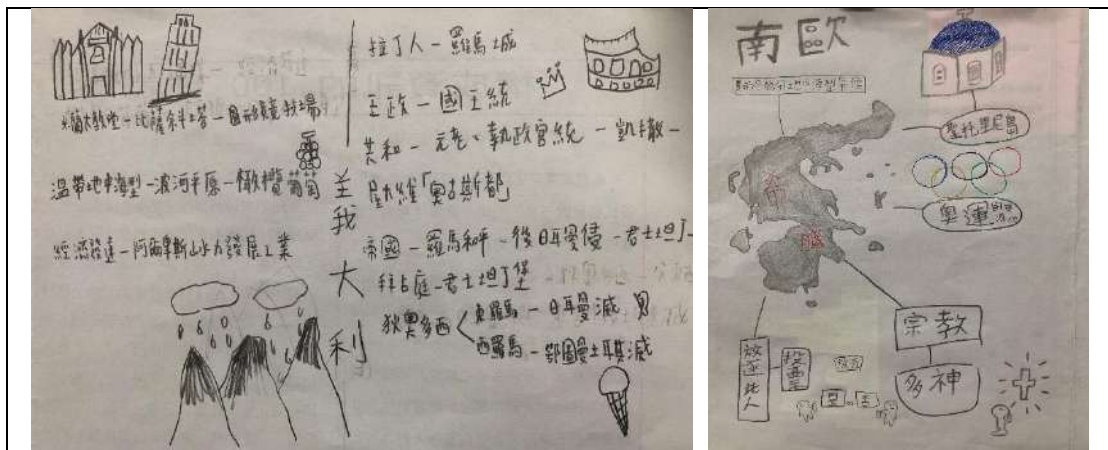 米蘭大教堂-比薩斜塔-圓形競技場
溫帶地中海型-波河平原-橄欖葡萄
經濟發達-阿爾卑斯山水力發展工業
義大利
拉丁人-羅馬城
王政-國王統
共和-元老、執政官統-凱撒-
屋大維「奧古斯都」
帝國-羅馬和平-後日耳曼侵-君士坦丁-
拜占庭-君士坦丁堡
狄奧多西
東羅馬-日耳曼滅
西羅馬-鄂圖曼土耳其滅
南歐
聖托里尼島
奧運
希
臘
宗教
多神
放逐此人
投票